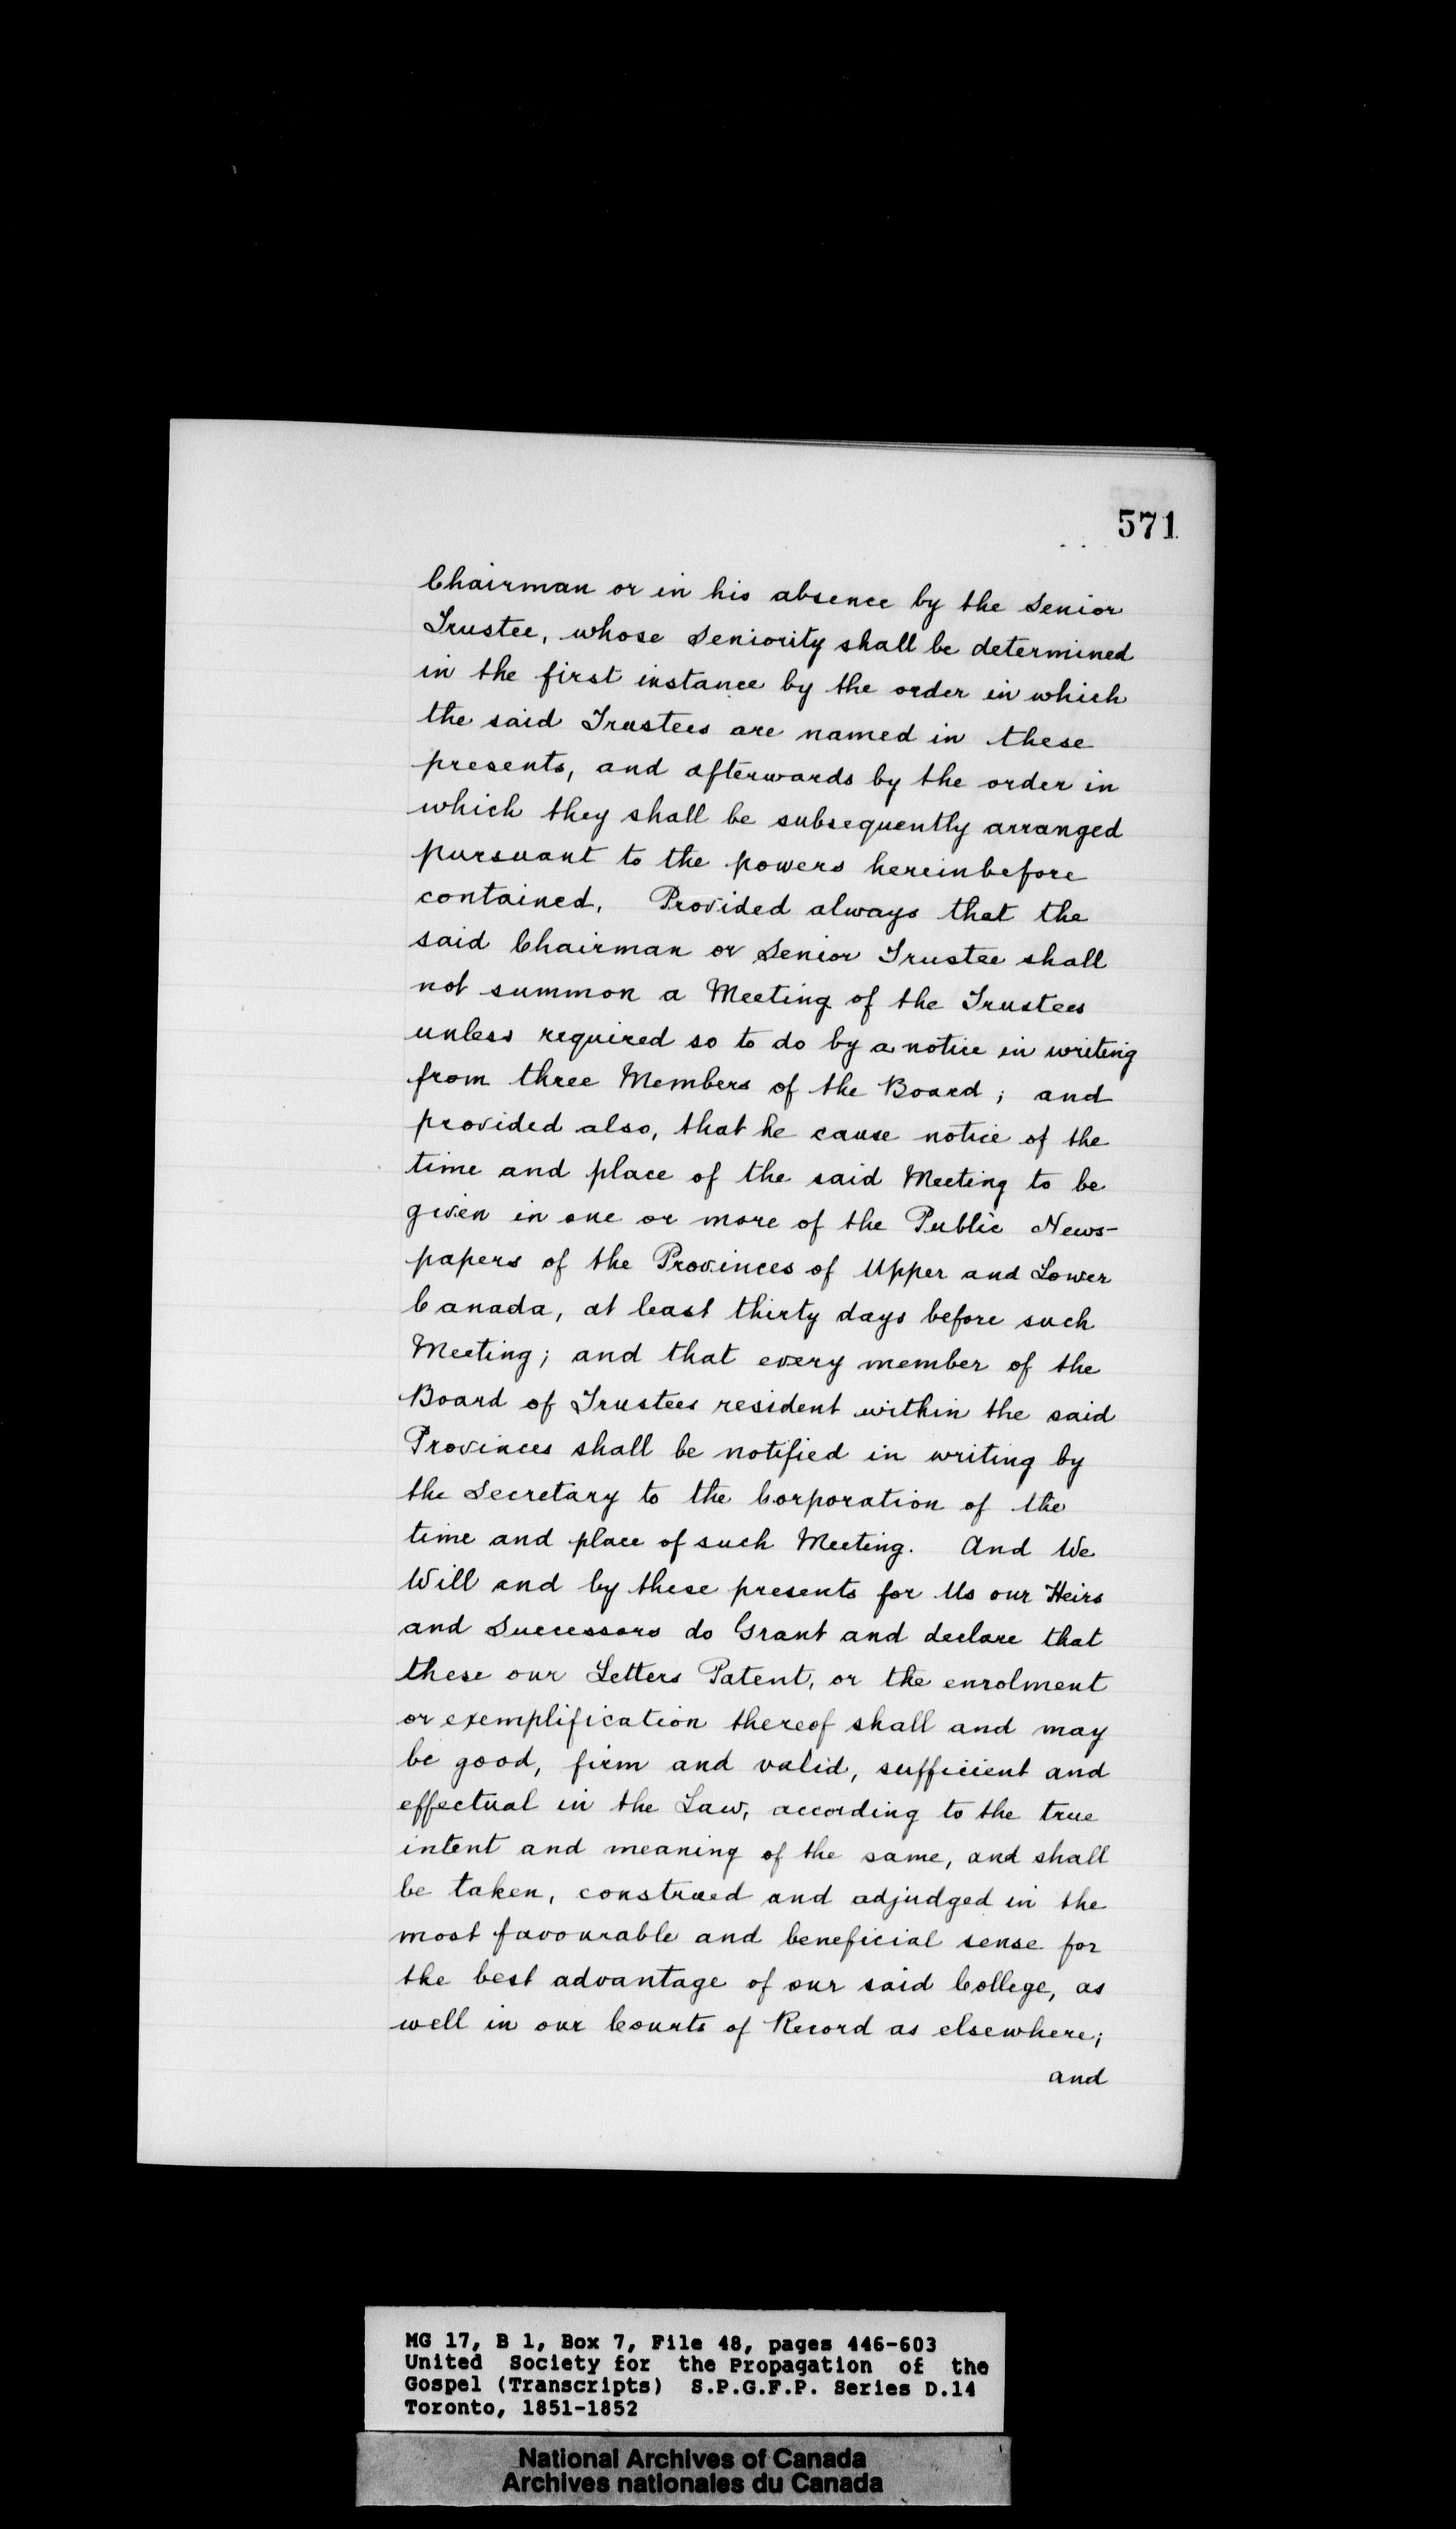 571
Chairman or in his absence by the Senior
Trustee, whose Seniority shall be determined
in the first instance by the order in which
the said Trustees are named in these
presents, and afterwards by the order in
which they shall be subsequently arranged
pursuant to the powers hereinbefore
contained. Provided always that the
said Chairman or Senior Trustee shall
not summon a Meeting of the Trustees
unless required so to do by a notice in writing
from three Members of the Board; and
provided also, that he cause notice of the
time and place of the said Meeting to be
given in one or more of the Public News-
papers of the Provinces of Upper and Lower
Canada, at least thirty days before such
Meeting; and that every member of the
Board of Trustees resident within the said
Provinces shall be notified in writing by
the Secretary to the Corporation of the
time and place of such Meeting. And We
Will and by these presents for Us our Heirs
and Successors do Grant and declare that
these our Letters Patent, or the enrolment
or exemplification thereof shall and may
be good, firm and valid, sufficient and
effectual in the Law, according to the true
intent and meaning of the same, and shall
be taken, construed and adjudged in the
most favourable and beneficial sense for
the best advantage of our said College, as
well in our Courts of Record as elsewhere;
and
MG 17, B 1, Box 7, File 48, pages 446-603
United Society for the Propagation of the
Gospel (Transcripts) S.P.G.F.P. Series D.14
Toronto, 1851-1852
National Archives of Canada
Archives nationales du Canada